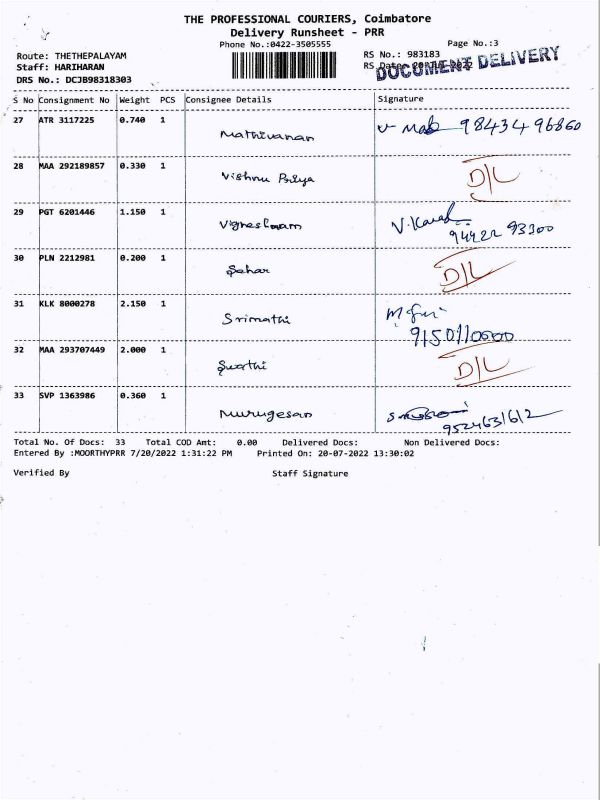 THE PROFESSIONAL COURIERS, Coimbatore
Delivery Runsheet - PRR
Phone No.:0422-3505555
Page No.:3
Route: THETHEPALAYAM
RS No.: 983183
Staff: HARIHARAN
RS Date: 20-Jul-2022
DOCUMENT DELIVERY
DRS No.: DCJB98318303
S No Consignment No Weight PCS Consignee Details Signature
27 ATR 3117225 0.740 1 Mathivanan 98434 96860
28 MAA 292189857 0.330 1 Vishnu Priya D/L
29 PGT 6201446 1.150 1 Vigneshwaram
94422 93300
30 PLN 2212981 0.200 1 Sahar D/L
31 KLK 8000278 2.150 1 Srimathi
9150110000
32 MAA 293707449 2.000 1 Swathi D/L
33 SVP 1363986 0.360 1 Murugesan
9524631612
Total No. Of Docs: 33 Total COD Amt: 0.00 Delivered Docs: Non Delivered Docs:
Entered By :MOORTHYPRR 7/20/2022 1:31:22 PM Printed On: 20-07-2022 13:30:02
Verified By Staff Signature